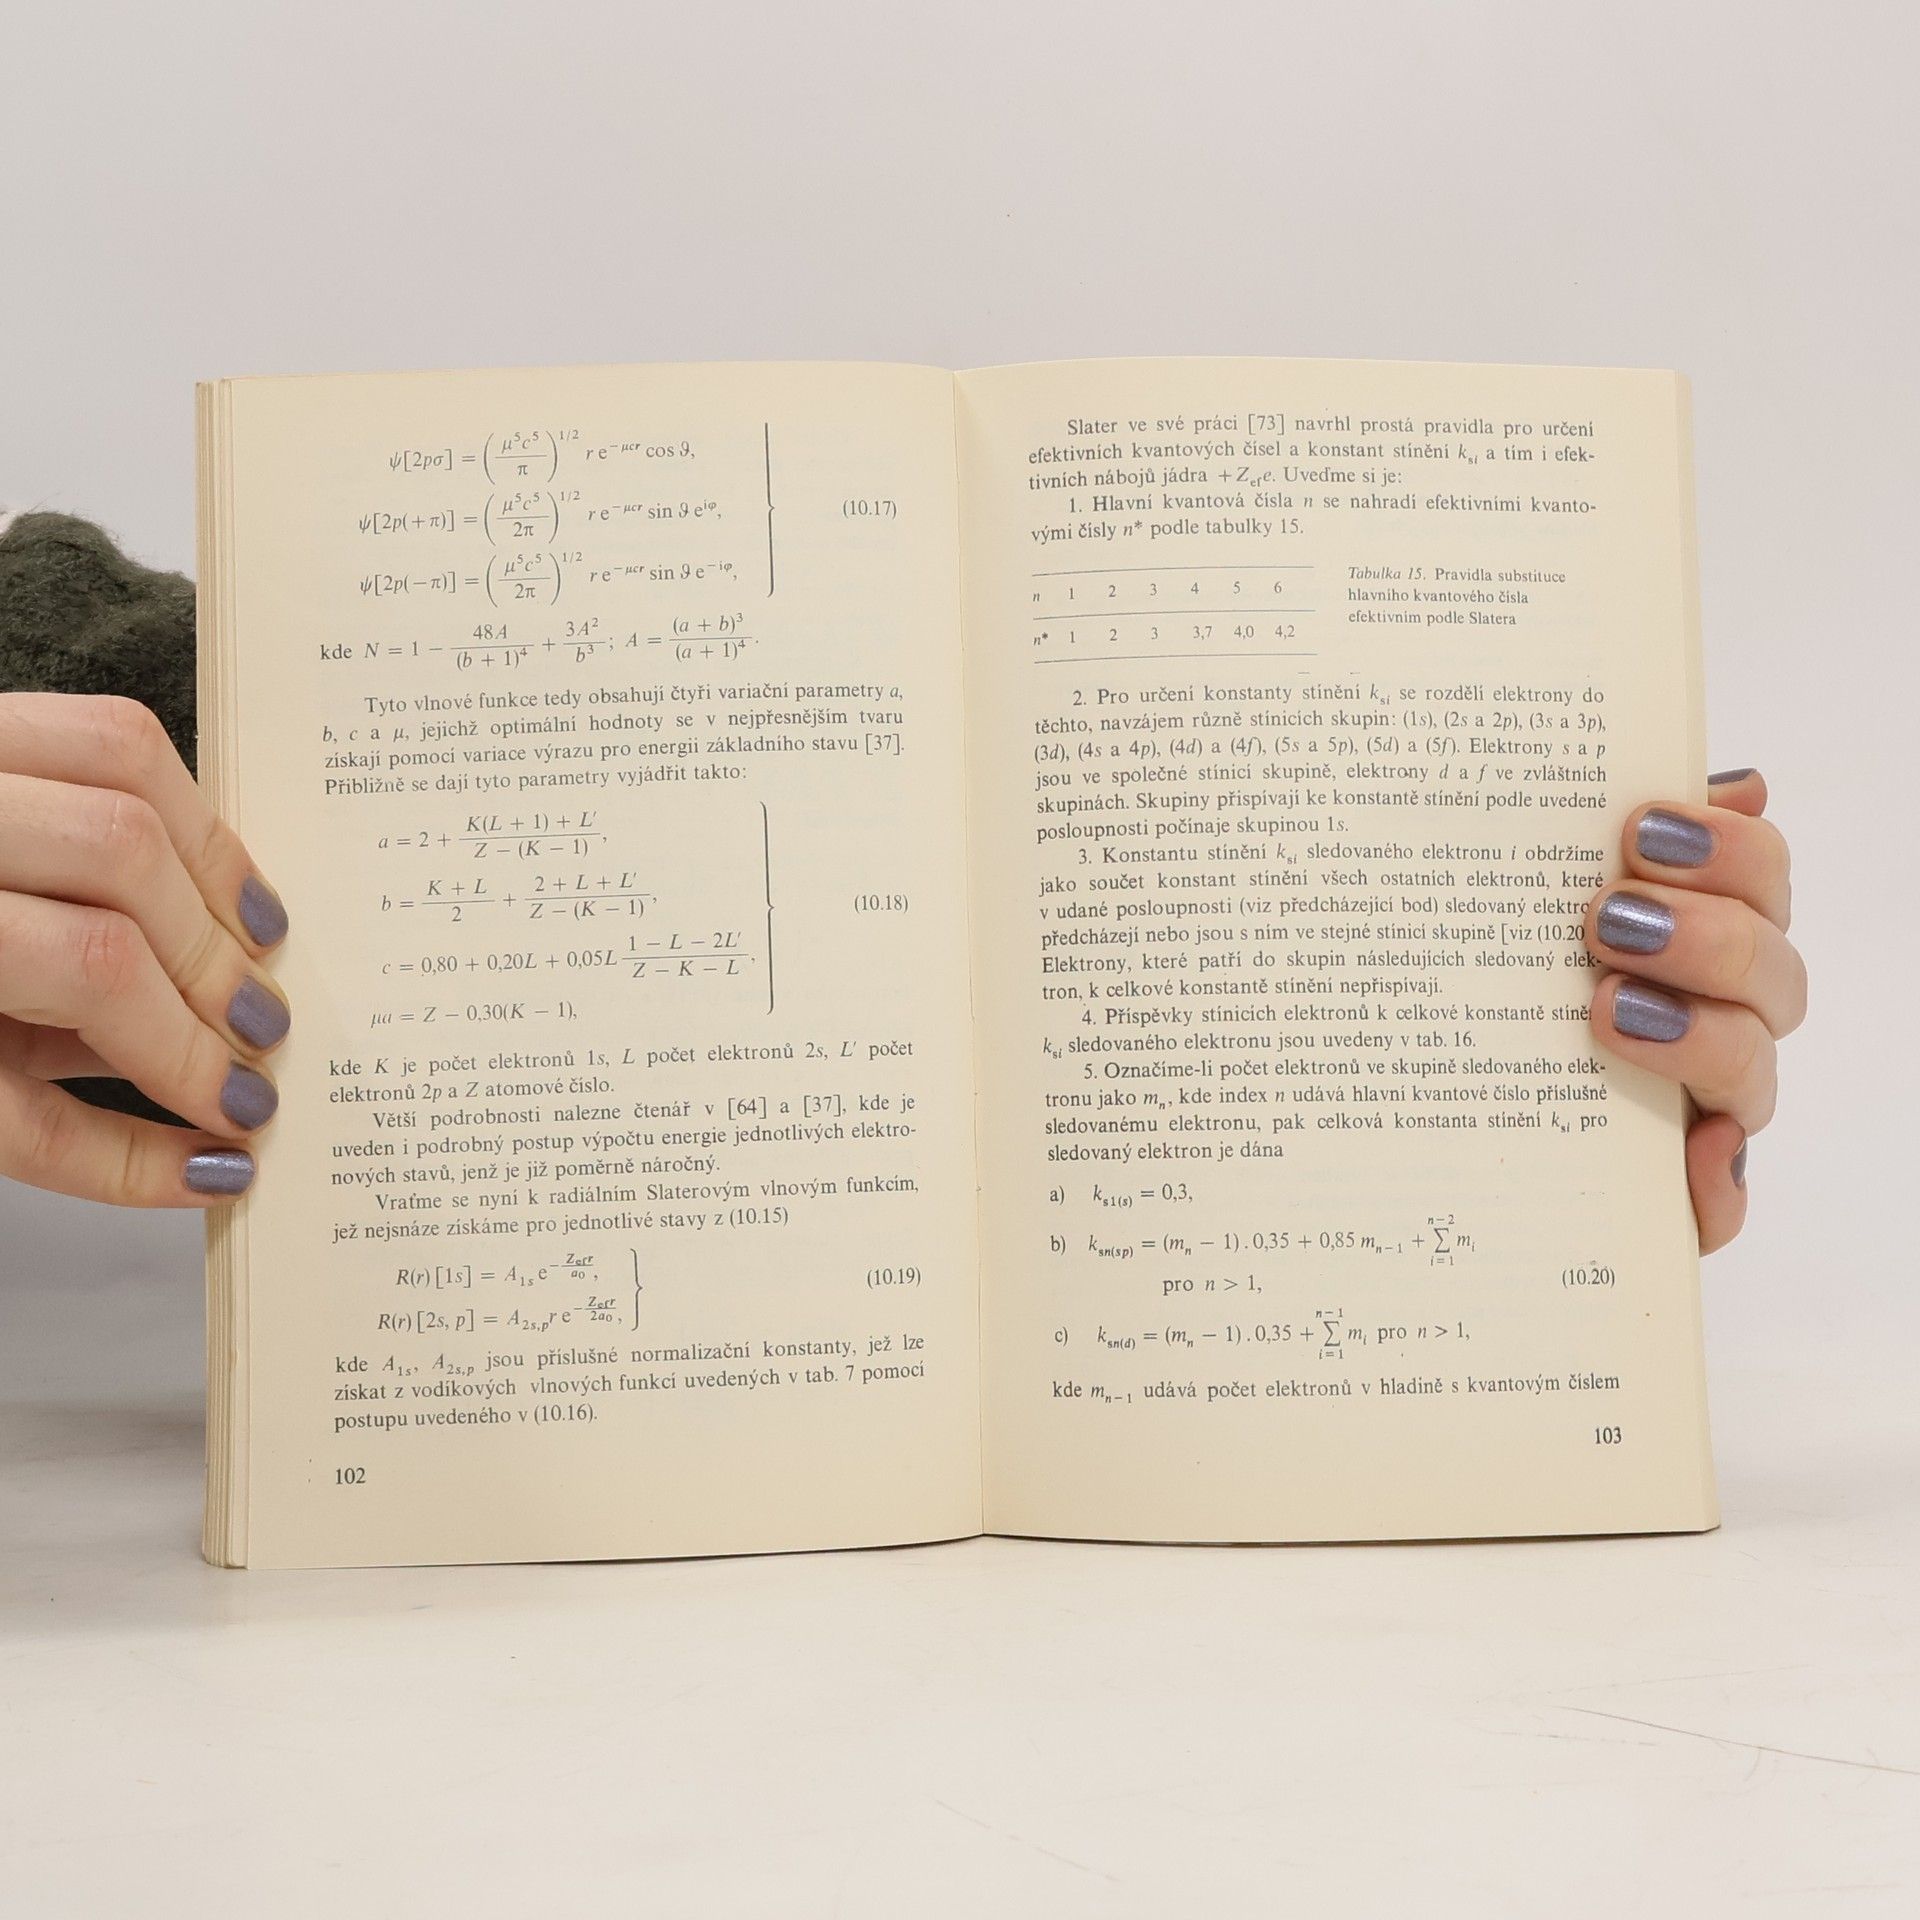 ψ[2pσ] = (μ⁵c⁵/π)^1/2 r e^−μcr cos ϑ,
ψ[2p(+π)] = (μ⁵c⁵/2π)^1/2 r e^−μcr sin ϑ e^iφ, (10.17)
ψ[2p(−π)] = (μ⁵c⁵/2π)^1/2 r e^−μcr sin ϑ e^−iφ,
kde N = 1 − 48A/(b + 1)⁴ + 3A²/b³; A = (a + b)³/(a + 1)⁴.
Tyto vlnové funkce tedy obsahují čtyři variační parametry a,
b, c a μ, jejichž optimální hodnoty se v nejpřesnějším tvaru
získají pomocí variace výrazu pro energii základního stavu [37].
Přibližně se dají tyto parametry vyjádřit takto:
a = 2 + K(L + 1) + L′/Z − (K − 1),
b = K + L/2 + 2 + L + L′/Z − (K − 1), (10.18)
c = 0,80 + 0,20L + 0,05L 1 − L − 2L′/Z − K − L,
μa = Z − 0,30(K − 1),
kde K je počet elektronů 1s, L počet elektronů 2s, L′ počet
elektronů 2p a Z atomové číslo.
Větší podrobnosti nalezne čtenář v [64] a [37], kde je
uveden i podrobný postup výpočtu energie jednotlivých elektro-
nových stavů, jenž je již poměrně náročný.
Vraťme se nyní k radiálním Slaterovým vlnovým funkcím,
jež nejsnáze získáme pro jednotlivé stavy z (10.15)
R(r) [1s] = A₁ₛ e^−Z_ef r/a₀, (10.19)
R(r) [2s, p] = A_2s,p r e^−Z_ef r/2a₀,
kde A₁ₛ, A_2s,p jsou příslušné normalizační konstanty, jež lze
získat z vodíkových vlnových funkcí uvedených v tab. 7 pomocí
postupu uvedeného v (10.16).
102
Slater ve své práci [73] navrhl prostá pravidla pro určení
efektivních kvantových čísel a konstant stínění k_si a tím i efek-
tivních nábojů jádra +Z_ef e. Uveďme si je:
1. Hlavní kvantová čísla n se nahradí efektivními kvanto-
vými čísly n* podle tabulky 15.
n 1 2 3 4 5 6
n* 1 2 3 3,7 4,0 4,2
Tabulka 15. Pravidla substituce
hlavního kvantového čísla
efektivním podle Slatera
2. Pro určení konstanty stínění k_si se rozdělí elektrony do
těchto, navzájem různě stínicích skupin: (1s), (2s a 2p), (3s a 3p),
(3d), (4s a 4p), (4d) a (4f), (5s a 5p), (5d) a (5f). Elektrony s a p
jsou ve společné stínicí skupině, elektrony d a f ve zvláštních
skupinách. Skupiny přispívají ke konstantě stínění podle uvedené
posloupnosti počínaje skupinou 1s.
3. Konstantu stínění k_si sledovaného elektronu i obdržíme
jako součet konstant stínění všech ostatních elektronů, které
v udané posloupnosti (viz předcházející bod) sledovaný elektro
předcházejí nebo jsou s ním ve stejné stínicí skupině [viz (10.20
Elektrony, které patří do skupin následujících sledovaný elek-
tron, k celkové konstantě stínění nepřispívají.
4. Příspěvky stínicích elektronů k celkové konstantě stíně
k_si sledovaného elektronu jsou uvedeny v tab. 16.
5. Označíme-li počet elektronů ve skupině sledovaného elek-
tronu jako m_n, kde index n udává hlavní kvantové číslo příslušné
sledovanému elektronu, pak celková konstanta stínění k_si pro
sledovaný elektron je dána
a) k_s1(s) = 0,3,
b) k_sn(sp) = (m_n − 1) . 0,35 + 0,85 m_n−1 + ∑_i=1^n−2 m_i
pro n > 1, (10.20)
c) k_sn(d) = (m_n − 1) . 0,35 + ∑_i=1^n−1 m_i pro n > 1,
kde m_n−1 udává počet elektronů v hladině s kvantovým číslem
103